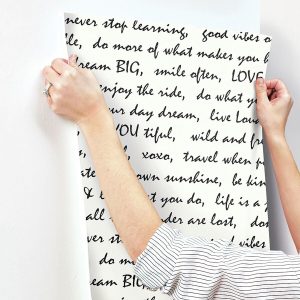 never stop learning, good vibes o
le, do more of what makes you h
ream BIG, smile often, LOVE
enjoy the ride, do what you
ur day dream, live Lou
YOU tiful, wild and fre
xoxo, travel when
own sunshine, be kin
& you do, life is a
all der are lost, do
ver stop good vibes
do me
eam BIG